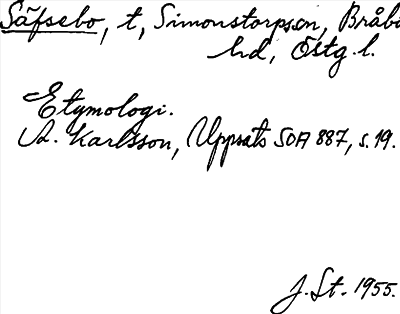 Säfsebo, t, Simonstorps sn, Bråbo
hd, Östg. l.
Etymologi.
A. Karlsson, Uppsats SOA 887, s. 19.
J. St. 1955.